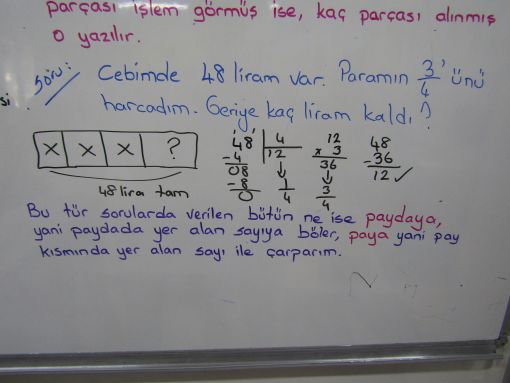 parçası işlem görmüş ise, kaç parçası alınmış
o yazılır.
Soru: Cebimde 48 liram var. Paramın 3/4 ' ünü
harcadım. Geriye kaç liram kaldı?
x x x ?
48 lira tam
48 | 4
-4 12
08
-8
0
1/4
12
x 3
36
3/4
48
-36
12 ✓
Bu tür sorularda verilen bütün ne ise paydaya,
yani paydada yer alan sayıya böler, paya yani pay
kısmında yer alan sayı ile çarparım.